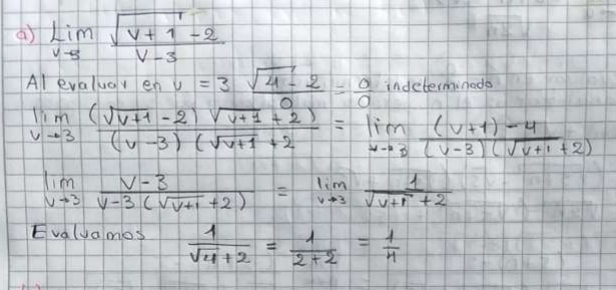 a) Lim √(v+1) -2 / v-3
v→3
Al evaluar en v = 3 √4 - 2 / 0 = 0/0 indeterminado
lim v→3 (√v+1 -2) √v+1 + 2) / (v-3) (√v+1 +2 = lim v→3 (v+1) -4 / (v-3) (√v+1 +2)
lim v→3 v-3 / v-3 (√v+1 +2) = lim v→3 1 / √v+1 +2
Evaluamos 1 / √4 +2 = 1 / 2+2 = 1/4